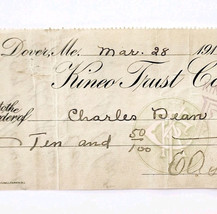 Dover, Me. Mar. 28 191
Kineo Trust Co
to the
order of Charles Dean
Ten and 50/100